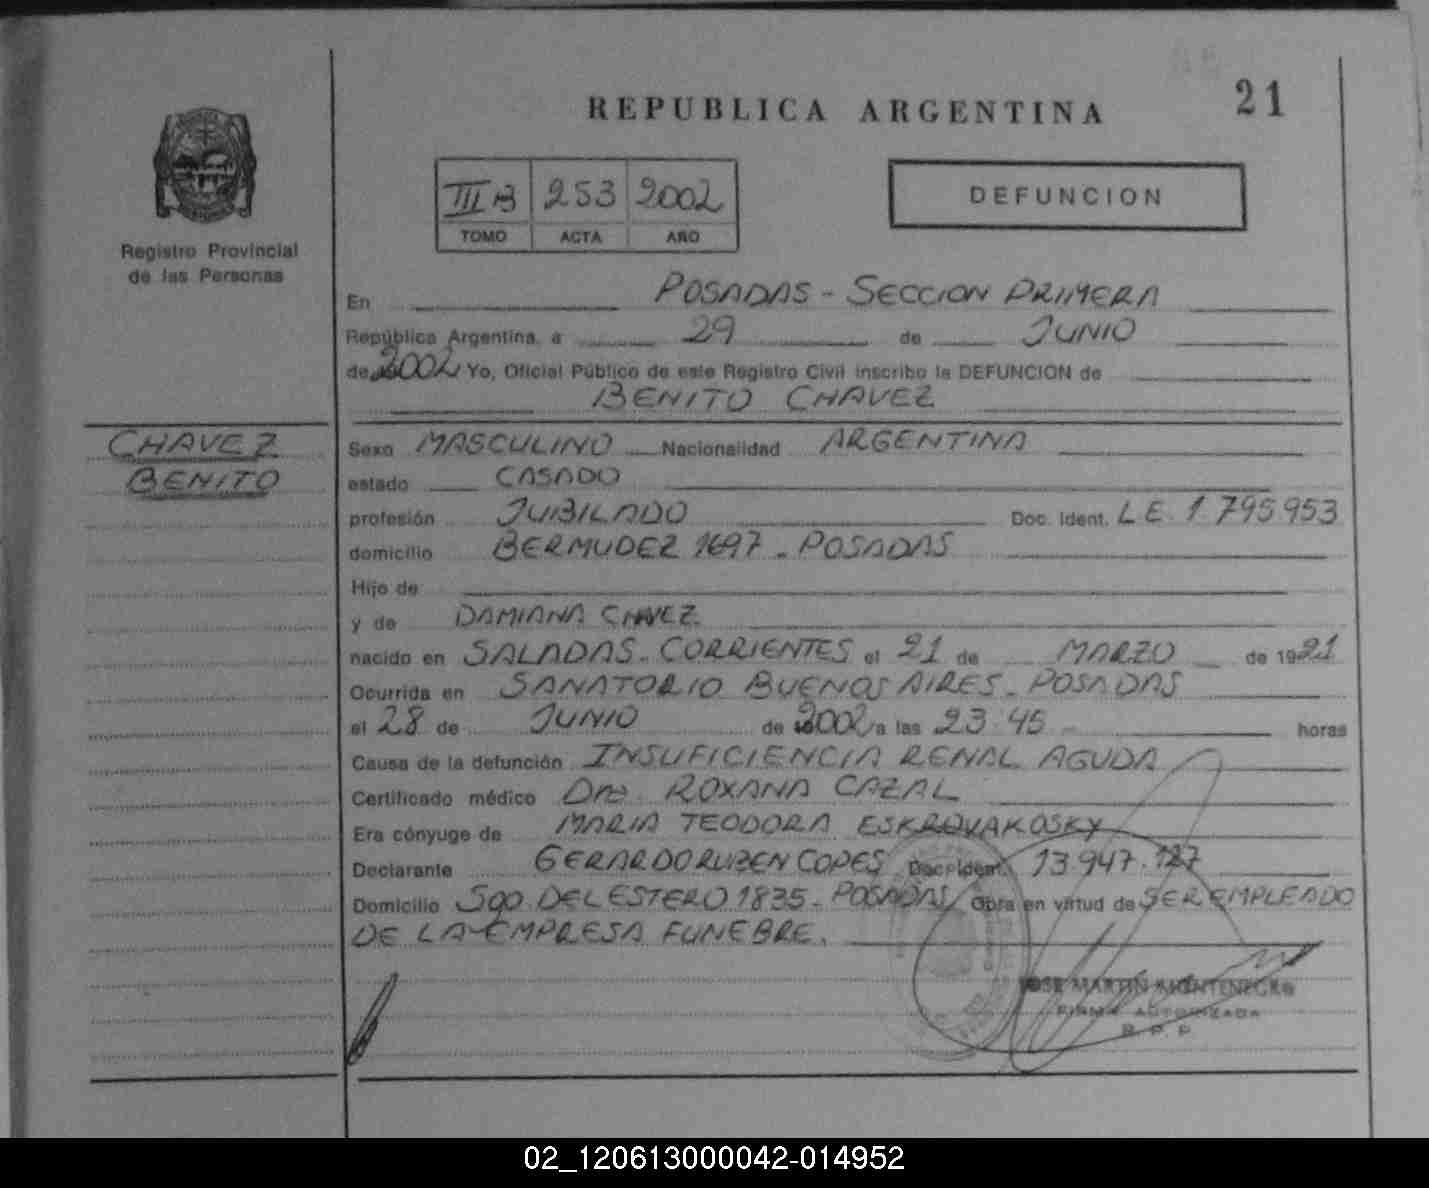 REPUBLICA ARGENTINA
21
III B 253 2002
TOMO ACTA AÑO
DEFUNCION
Registro Provincial
de las Personas
En POSADAS - SECCION PRIMERA
República Argentina, a 29 de JUNIO
de 2002 Yo, Oficial Público de este Registro Civil inscribo la DEFUNCION de
BENITO CHAVEZ
CHAVEZ
BENITO
Sexo MASCULINO Nacionalidad ARGENTINA
estado CASADO
profesión JUBILADO Doc. Ident. L E. 1.795953
domicilio BERMUDEZ 1697 - POSADAS
Hijo de
y de DAMIANA CHAVEZ
nacido en SALADAS - CORRIENTES el 21 de MARZO de 1921
Ocurrida en SANATORIO BUENOS AIRES - POSADAS
el 28 de JUNIO de 2002 a las 23.45 horas
Causa de la defunción INSUFICIENCIA RENAL AGUDA
Certificado médico Dra. ROXANA CAZAL
Era cónyuge de MARIA TEODORA ESKROVAKOSKY
Declarante GERARDO RUBEN COPES Doc. Ident. 13.947.127
Domicilio Sgo. DEL ESTERO 1835 - POSADAS Obra en virtud de SER EMPLEADO
DE LA EMPRESA FUNEBRE.
JOSE MARTIN MONTENEGRO
FIRMA AUTORIZADA
R. P. P.
02_120613000042-014952